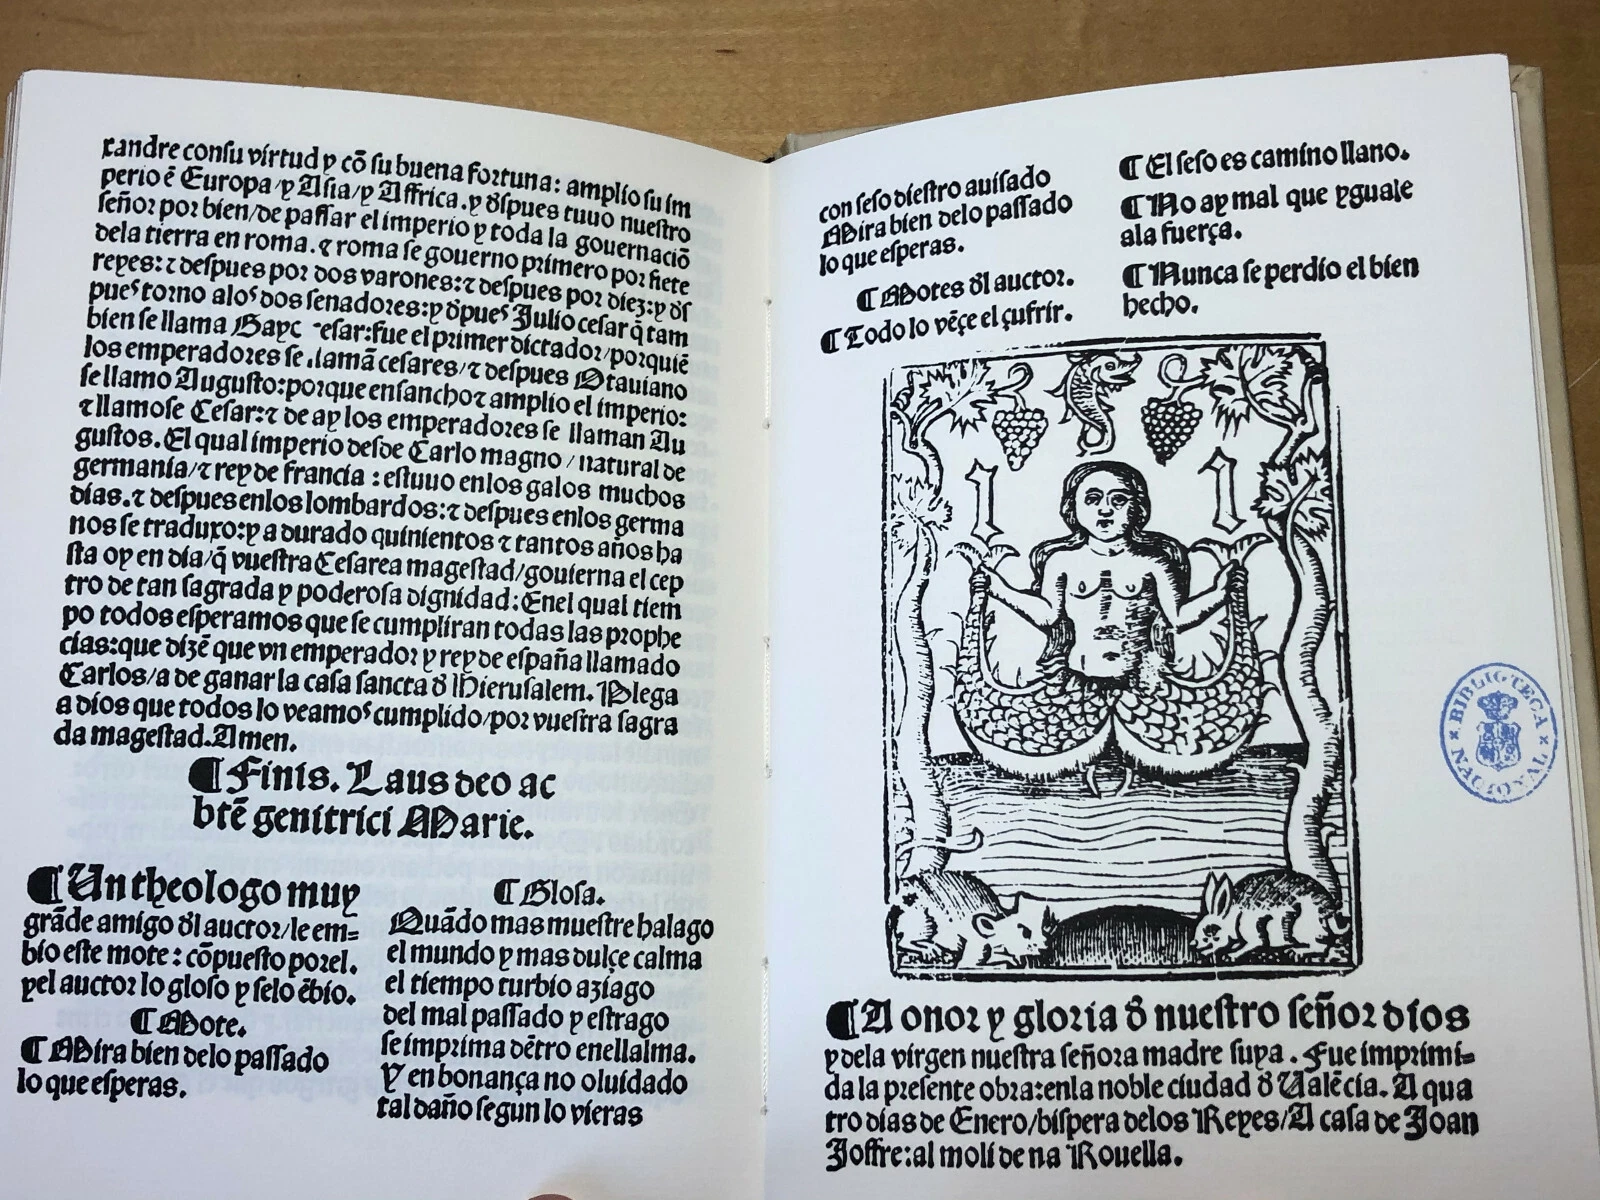 xandre consu virtud y cõ su buena fortuna: amplio su im
perio ẽ Europa/y Asia/y Affrica.y d̃spues tuuo nuestro
señor por bien/de passar el imperio y toda la gouernaciõ
dela tierra en roma.⁊ roma se gouerno primero por siete
reyes:⁊ despues por dos varones:⁊ despues por diez:y d̃s
pues torno alos dos senadores:y d̃pues Julio cesar q̃ tam
bien se llama Gayc esar:fue el primer dictador/porquiẽ
los emperadores se llamã cesares/⁊ despues Otauiano
se llamo Augusto:porque ensancho⁊ amplio el imperio:
⁊ llamose Cesar:⁊ de ay los emperadores se llaman Au
gustos. El qual imperio desde Carlo magno/natural de
germania/⁊ rey de francia : estuuo enlos galos muchos
dias.⁊ despues enlos lombardos:⁊ despues enlos germa
nos se traduxo:y a durado quinientos ⁊ tantos años ha
sta oy en dia/q̃ vuestra Cesarea magestad/gouierna el cep
tro de tan sagrada y poderosa dignidad: Enel qual tiem
po todos esperamos que se cumpliran todas las prophe
cias:que dizẽ que vn emperador y rey de españa llamado
Carlos/a de ganar la casa sancta d̃ Hierusalem. Plega
a dios que todos lo veamos cumplido/por vuestra sagra
da magestad.Amen.
¶ Finis. Laus deo ac
btẽ genitrici Marie.
¶ Un theologo muy
grãde amigo d̃l auctor/le em=
bio este mote : cõpuesto porel.
yel auctor lo gloso y selo ẽbio.
¶ Mote.
¶ Mira bien delo passado
lo que esperas.
¶ Glosa.
Quãdo mas muestre halago
el mundo y mas dulçe calma
el tiempo turbio aziago
del mal passado y estrago
se imprima dẽtro enellalma.
Y en bonança no oluidado
tal daño segun lo vieras
con seso diestro auisado
Mira bien delo passado
lo que esperas.
¶ Motes d̃l auctor.
¶ Todo lo vẽçe el çufrir.
¶ El seso es camino llano.
¶ No ay mal que yguale
ala fuerça.
¶ Nunca se perdio el bien
hecho.
I I
¶ A onor y gloria d̃ nuestro señor dios
ydela virgen nuestra señora madre suya . Fue imprimi=
da la presente obra:enla noble ciudad d̃ Ualẽcia. A qua
tro dias de Enero/bispera delos Reyes/A casa de Joan
Joffre:al moli de na Rouella.
BIBLIOTECA